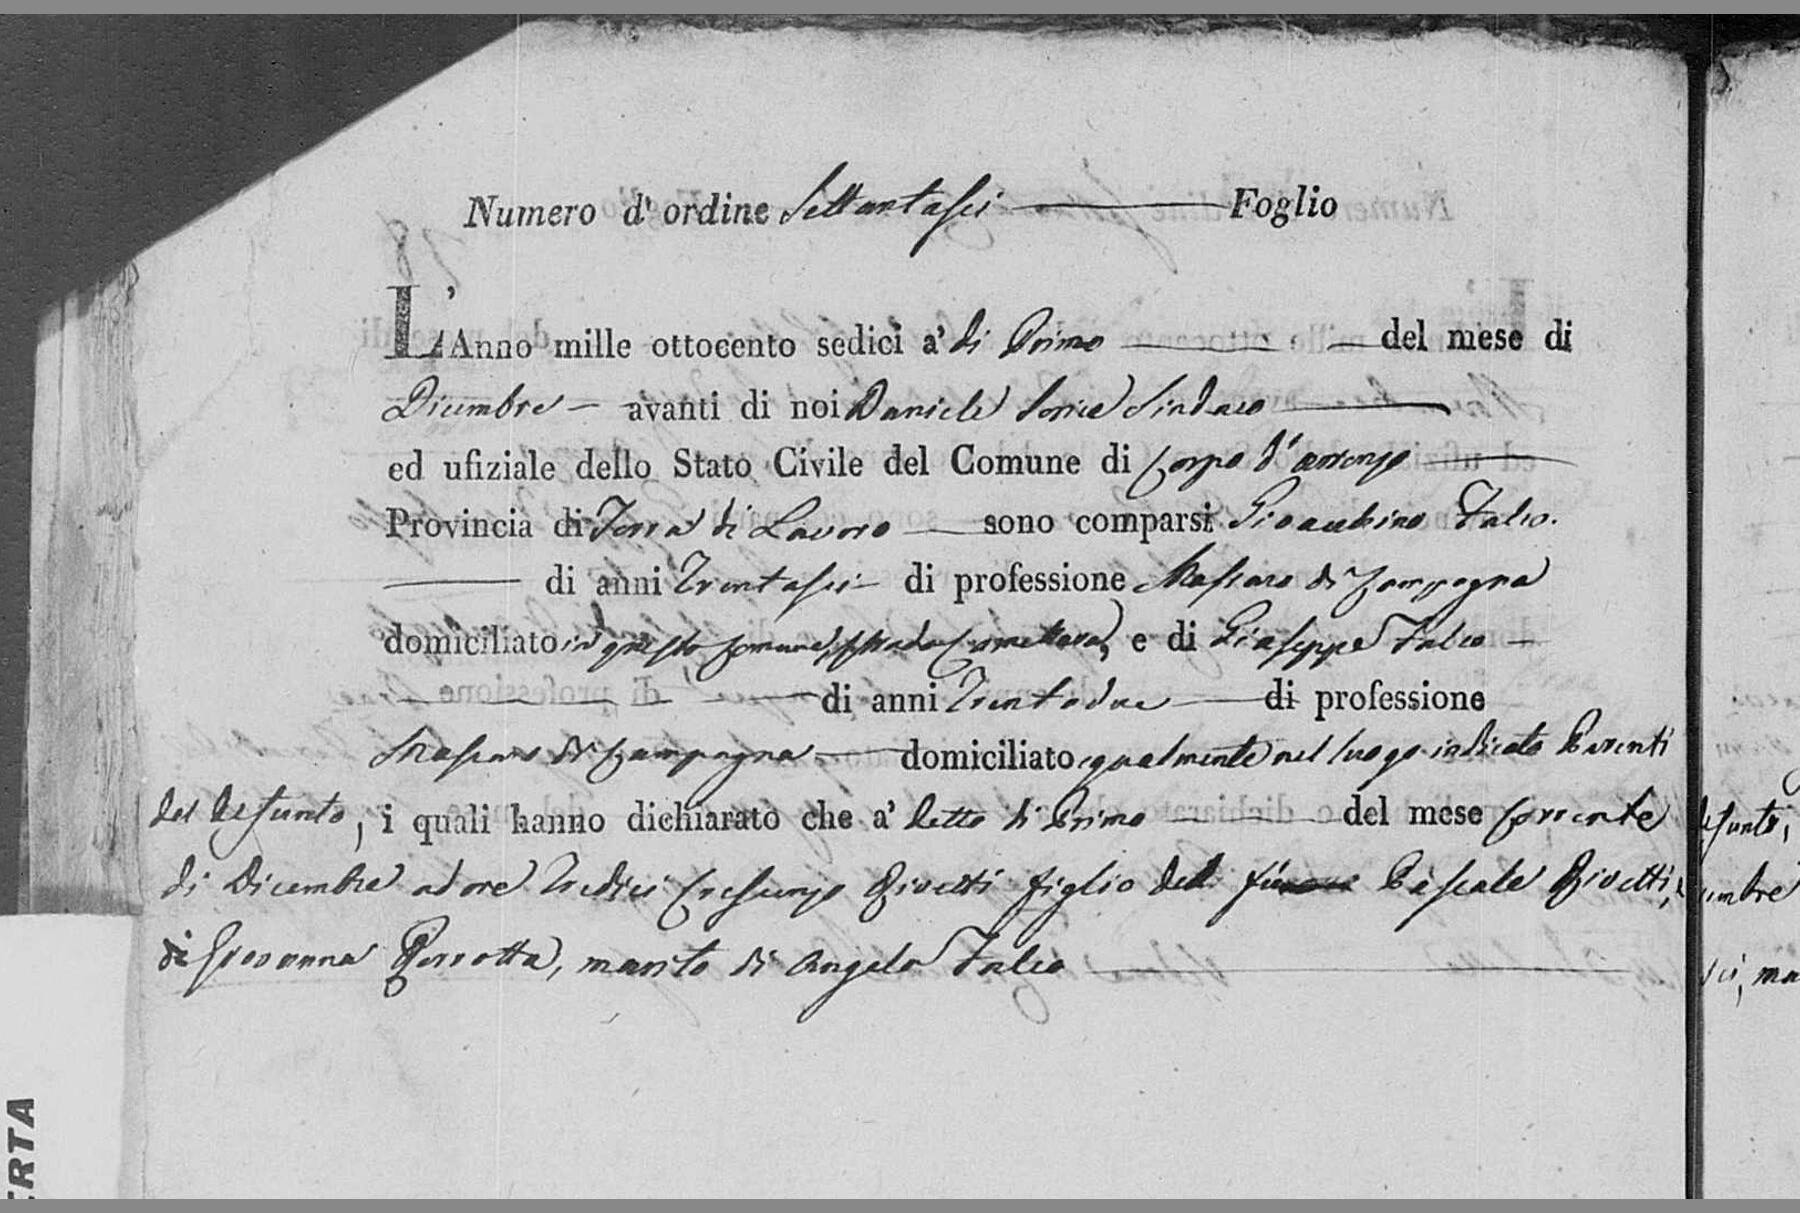 Numero d' ordine Settantasei Foglio
L'Anno mille ottocento sedici a' di Primo del mese di
Dicembre avanti di noi Daniele Sindaco
ed ufiziale dello Stato Civile del Comune di Corpo d'arienzo
Provincia di Terra di Lavoro sono comparsi Gioacchino Falco.
di anni Trentasei di professione Massaro di Campagna
domiciliato in questo Comune, strada, e di Giuseppe Falco
di anni Trentadue di professione
Massaro di Campagna domiciliato egualmente nel luogo indicato Parenti
del defunto, i quali hanno dichiarato che a' detto di Primo del mese corrente
di Dicembre ad ore Tredici Crescenzo Piovetti figlio del Pascale Piovetti, e
di Giovanna Perrotta, marito di Angela Falco
efunto,
embre
ma
ERTA